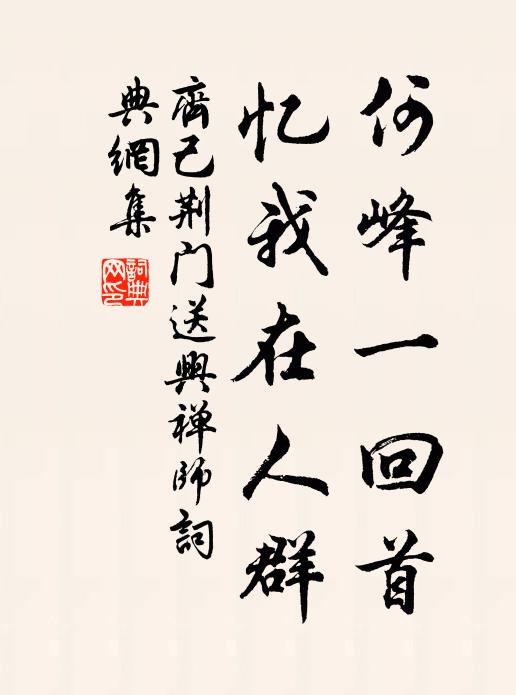 何峰一回首
忆我在人群
齊己荆门送興禅师詞
典網集
詞典网印